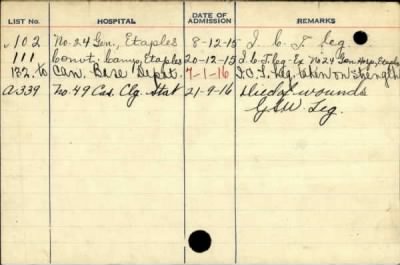 LIST No. HOSPITAL DATE OF ADMISSION REMARKS
102 No. 24 Gen., Etaples 8-12-15 I. C. T. Leg.
111 Convt. Camp, Etaples 20-12-15 I. C. T. Leg - Ex No 24 Gen. Hosp. Etaples
132. to Can. Base Depot. 7-1-16 I. C. T. Leg. taken on strength
A339 No. 49 Cas. Clg. Stat 21-9-16 Died of wounds
GSW Leg.